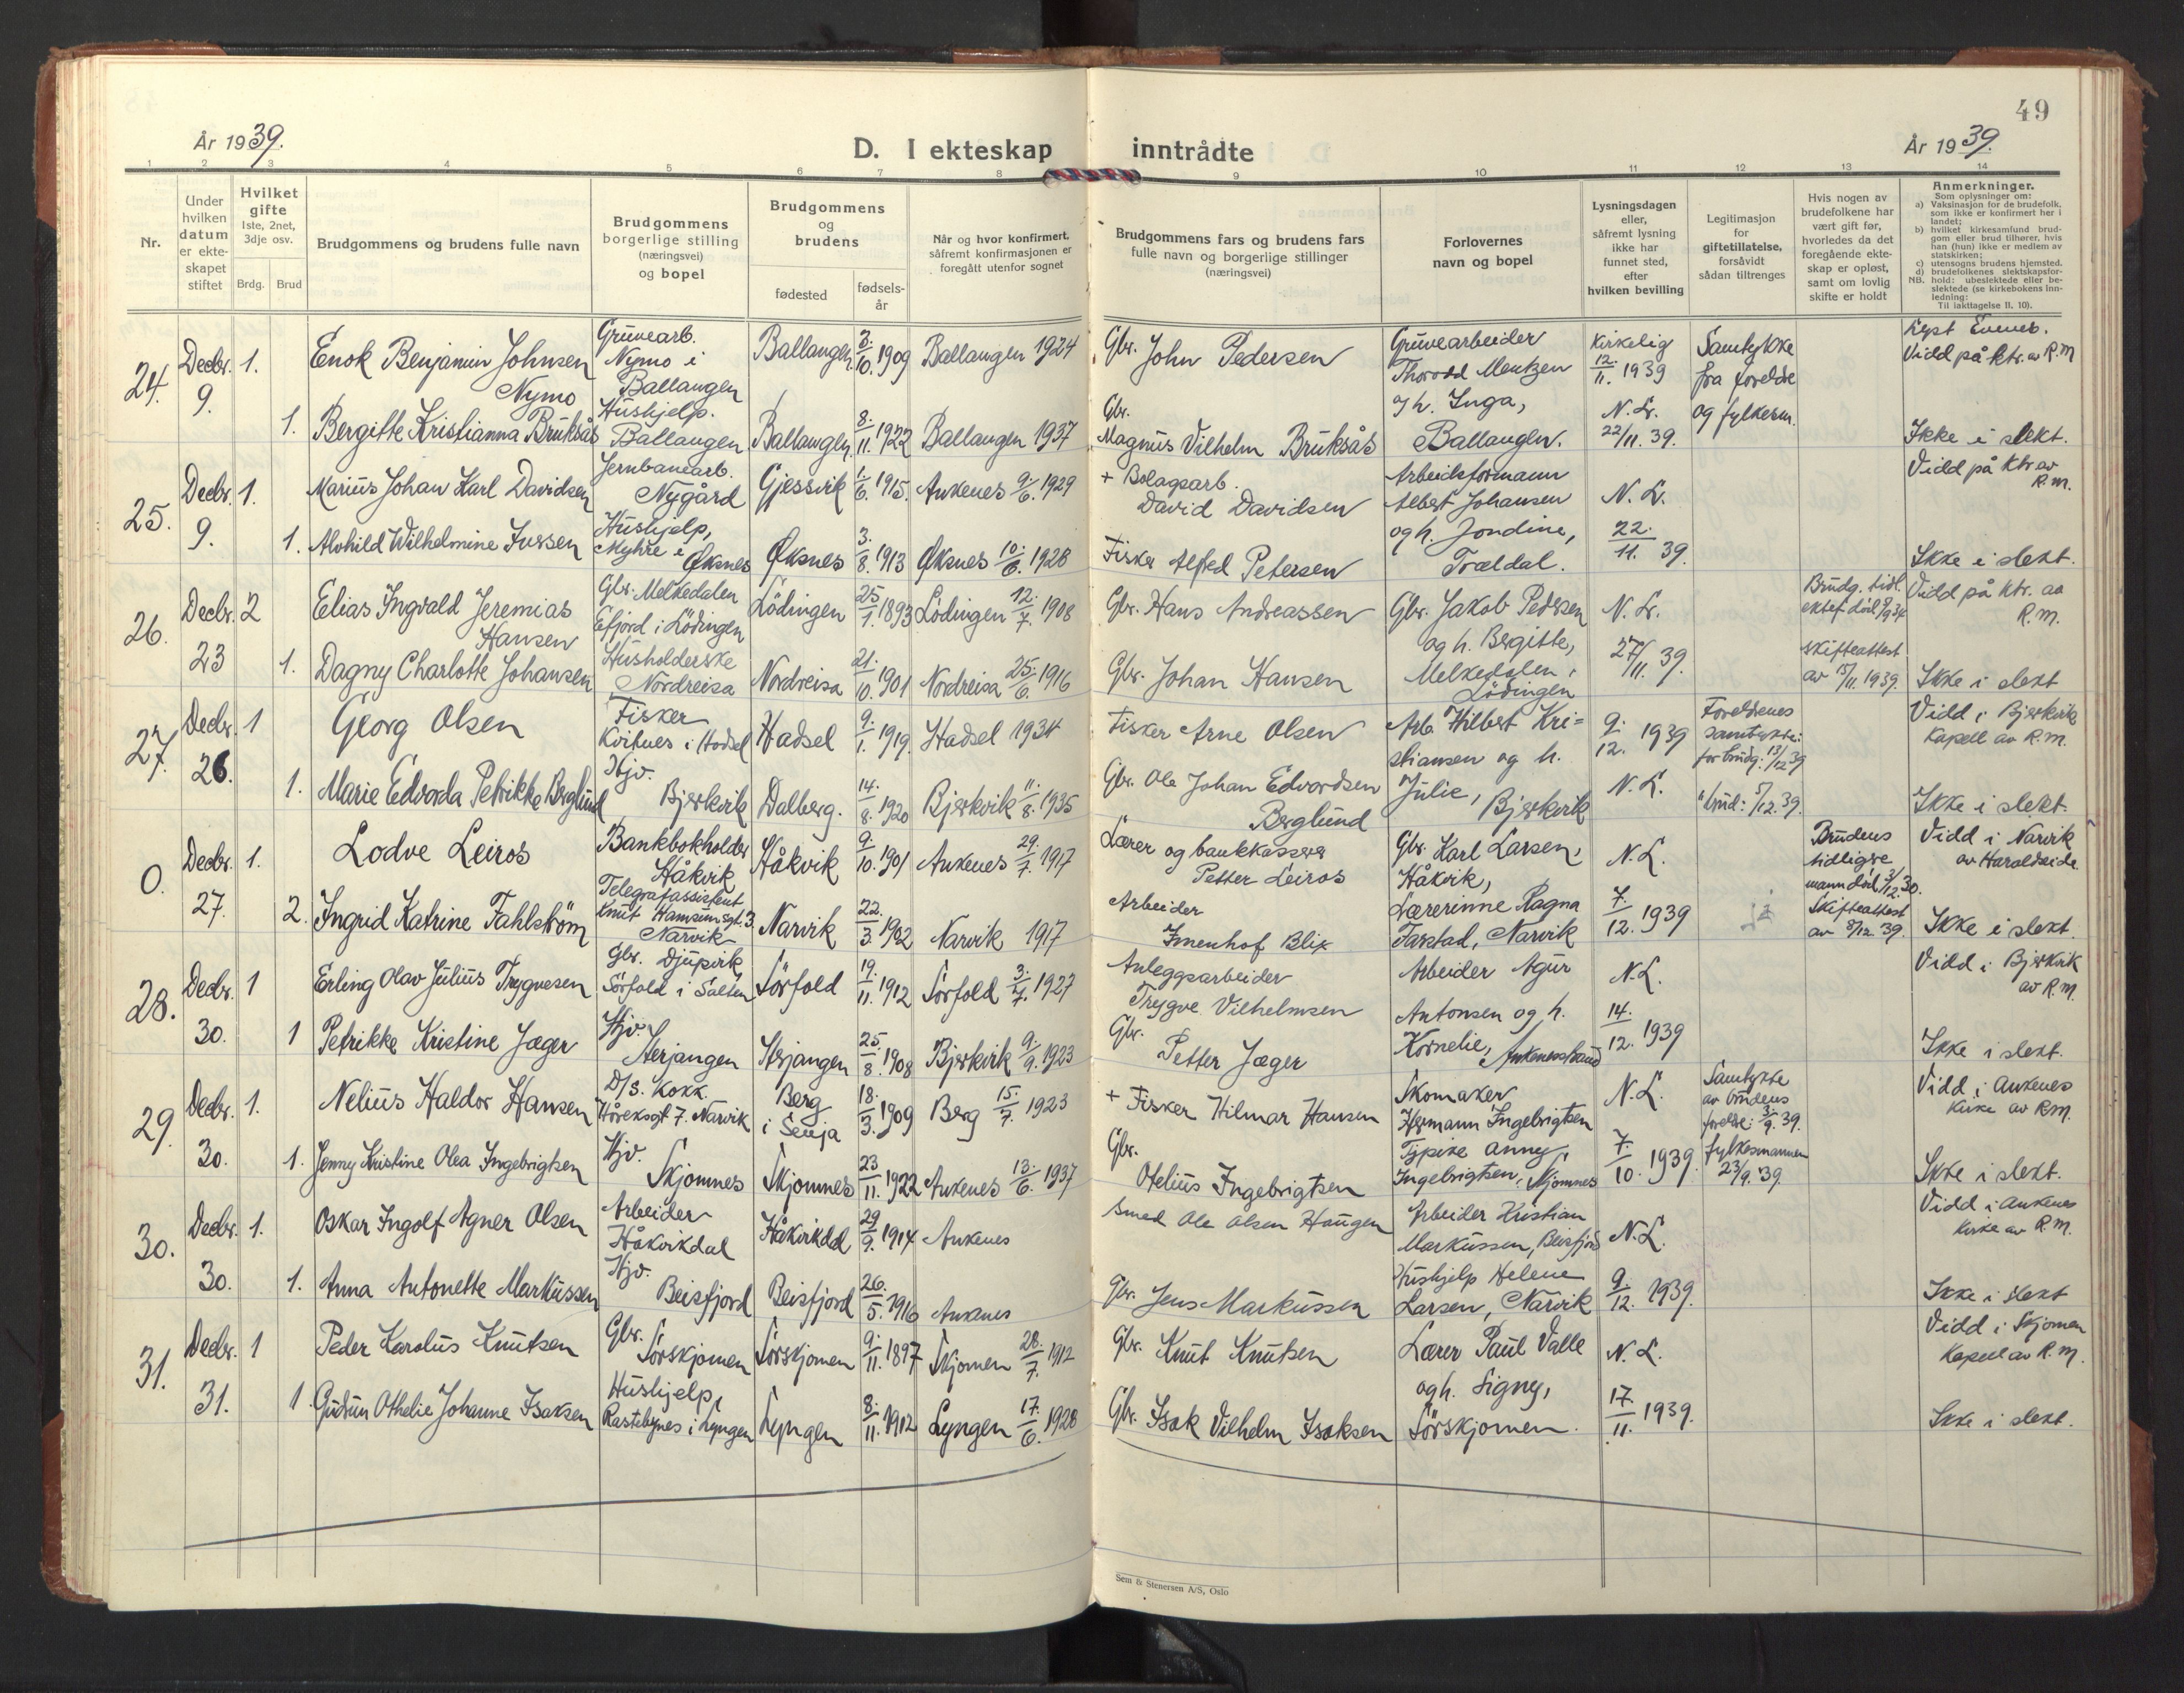 49
År 1939.
D. I ekteskap inntrådte
År 1939.
1 2 3 4 5 6 7 8 9 10 11 12 13 14
Nr.
Under hvilken datum er ekte- skapet stiftet
Hvilket gifte 1ste, 2net, 3dje osv.
Brdg. Brud
Brudgommens og brudens fulle navn
Brudgommens borgerlige stilling (næringsvei) og bopel
Brudgommens og brudens
fødested
fødsels- år
Når og hvor konfirmert, såfremt konfirmasjonen er foregått utenfor sognet
Brudgommens fars og brudens fars fulle navn og borgerlige stillinger (næringsvei)
Forlovernes navn og bopel
Lysningsdagen eller, såfremt lysning ikke har funnet sted, efter hvilken bevilling
Legitimasjon for giftetillatelse, forsåvidt sådan tiltrenges
Hvis nogen av brudefolkene har vært gift før, hvorledes da det foregående ekte- skap er opløst, samt om lovlig skifte er holdt
Anmerkninger.
Som oplysninger om:
a) Vaksinasjon for de brudefolk, som ikke er konfirmert her i landet;
b) hvilket kirkesamfund brud- gom eller brud tilhører, hvis han (hun) ikke er medlem av statskirken;
c) utensogns brudens hjemsted.
d) brudefolkenes slektskapsfor- hold: ubeslektede eller be- slektede (se kirkebokens inn- ledning:
NB. Til iakttagelse II. 10).
24. Decbr. 9. 1. Enok Benjamin Johnsen Nymo Gruvearb. Nymo i Ballangen Ballangen 3/10. 1909 Ballangen 1924 Gbr. John Pedersen Gruvearbeider Thorodd Mentzen Kirkelig 12/11. 1939 Samtykke fra foreldre Lyst Evenes. Vidd på ktr. av R.M
1. Bergitte Kristianna Bruksås Hushjelp. Ballangen Ballangen 8/11. 1922 Ballangen 1937 Gbr. Magnus Vilhelm Bruksås og h. Inga, Ballangen. N.L. 22/11. 39. og fylkesm. Ikke i slekt.
25. Decbr. 9. 1. Marius Johan Karl Davidsen Jernbanearb. Nygård Gjessvik 1/6. 1915. Ankenes 9/6. 1929 + Bolagsarb. David Davidsen Arbeidsformann Albert Johansen N.L. Vidd på ktr av R.M.
1. Alvhild Wilhelmine Jussen Hushjelp, Myhre i Øksnes Øksnes 3/8. 1913 Øksnes 10/6. 1928 Fisker Alfred Petersen og h. Jondine, Trældal. 22/11. 39. Ikke i slekt.
26. Decbr. 23 2 Elias Ingvald Jeremias Hansen Gbr. Melkedalen Efjord i Lödingen Lödingen 25/1. 1893 Lödingen 12/7. 1908 Gbr. Hans Andreassen Gbr. Jakob Pedersen N.L. Brudg. tidl. ektef. död 9/9 34 Vidd på ktr. av R.M.
1. Dagny Charlotte Johansen Husholderske Nordreisa Nordreisa 21/10. 1901 Nordreisa 25/6. 1916 Gbr. Johan Hansen og h. Bergitte, Melkedalen i Lödingen 27/11. 39. skifteattest av 15/11. 1939. Ikke i slekt
27. Decbr. 26. 1 Georg Olsen Fisker Kvitnes i Hadsel Hadsel 9/1. 1919. Hadsel 1934 Fisker Arne Olsen Arb. Hilbert Kri= stiansen og h. 9/12. 1939 Foreldrenes samtykke: for brudg: 13/12 39 Vidd i Bjerkvik Kapell av R.M.
1. Marie Edvarda Petrikke Berglund Hjv. Bjerkvik Dalberg. 14/8. 1920 Bjerkvik 11/8. 1935 Gbr. Ole Johan Edvardsen Berglund Julie, Bjerkvik N.L. " brud: 5/12. 39. Ikke i slekt.
0. Decbr. 27. 1. Lodve Leiros Bankbokholder Håkvik Håkvik 9/10. 1901 Ankenes 29/7. 1917 Lærer og bankkasserer Petter Leiros Gbr. Karl Larsen, Håkvik, N.L. Brudens tidligere mann död 3/12. 30. Vidd i Narvik av Haraldseide.
2. Ingrid Katrine Fahlström Telegrafassistent Knut Hamsunsgt. 3. Narvik Narvik 22/3. 1902 Narvik 1917 Arbeider Imenhof Blix Lærerinne Ragna Farstad, Narvik 7/12. 1939 Skifteattest av 8/12. 39. Ikke i slekt.
28. Decbr. 30. 1 Erling Olav Julius Trygvesen Gbr. Djupvik Sörfold i Salten Sörfold 19/11. 1912 Sörfold 3/7. 1927 Anleggsarbeider Trygve Vilhelmsen Arbeider Agur N.L. Vidd i Bjerkvik av R.M.
1 Petrikke Kristine Jæger Hjv. Herjangen Herjangen 25/8. 1908 Bjerkvik 9/9. 1923 Gbr. Petter Jæger Antonsen og h. Kornelie, Ankenesstrand 14/12. 1939 Ikke i slekt.
29. Decbr. 30. 1. Nelius Haldor Hansen D/S. Kokk. Höreksgt 7. Narvik Berg i Senja 18/3. 1909 Berg 15/7. 1923 + Fisker Hilmar Hansen Skomaker Hermann Ingebrigtsen N.L. Samtykke av brudens foreldre: 3/9. 39. Vidd i Ankenes Kirke av R.M.
1. Jenny Kristine Olea Ingebrigtsen Hjv. Skjomnes Skjomnes 23/11. 1922 Ankenes 13/6. 1937 Gbr. Otelius Ingebrigtsen Typixe Anny Ingebrigtsen, Skjomnes 7/10. 1939. fylkesmannen 23/9. 39. Ikke i slekt.
30. Decbr. 30. 1. Oskar Ingolf Agner Olsen Arbeider Håkvikdal Håkvikdal 29/9. 1914 Ankenes Smed Ole Olsen Haugen Arbeider Kristian Markussen, Beisfjord N.L. Vidd i Ankenes Kirke av R.M.
1. Anna Antonette Markussen Hjv. Beisfjord Beisfjord 26/5. 1916 Ankenes Gbr. Jens Markussen Hushjelp Helene Larsen, Narvik 9/12. 1939. Ikke i slekt
31. Decbr. 31. 1 Peder Karolus Knutsen Gbr. Sörskjomen Sörskjomen 9/11. 1897 Skjomen 28/7. 1912 Gbr. Knut Knutsen Lærer Paul Valle N.L. Vidd i Skjomen Kapell av R.M.
1. Gudrun Othelie Johanne Isaksen Hushjelp, Rastebynes i Lyngen Lyngen 8/11. 1912 Lyngen 17/6. 1928 Gbr. Isak Vilhelm Isaksen og h. Signy, Sörskjomen. 17/11. 1939. Ikke i slekt.
Sem & Stenersen A/S, Oslo